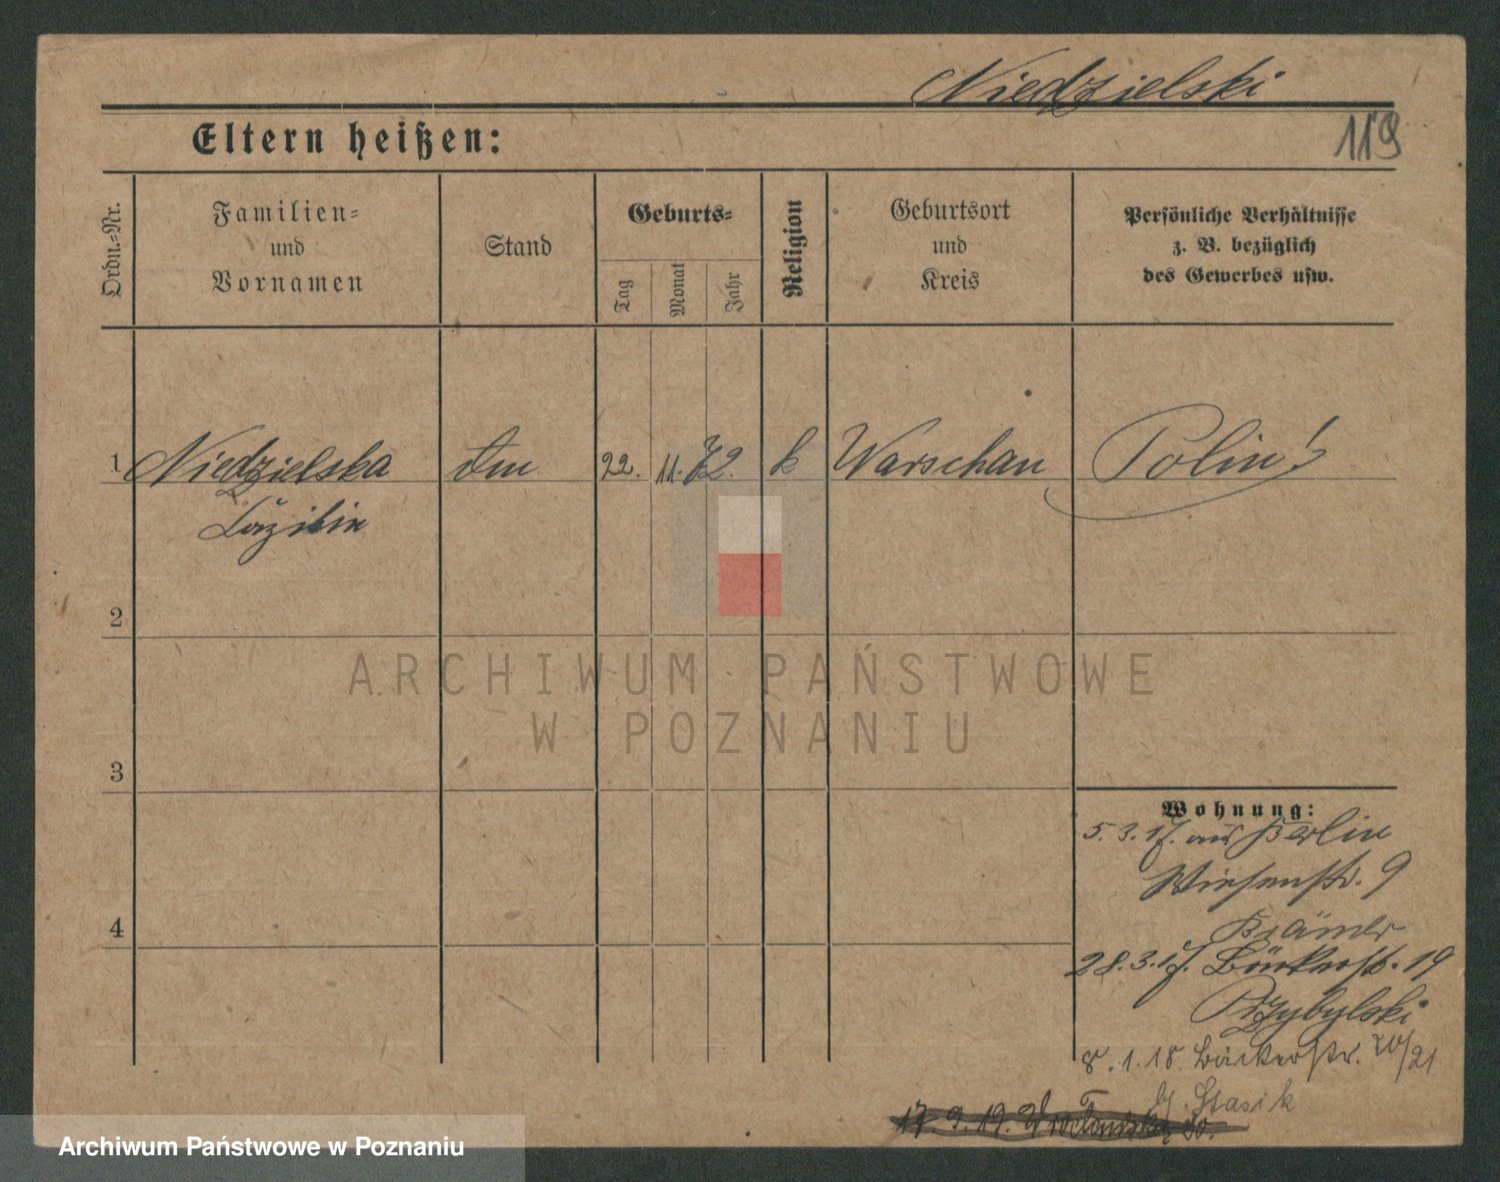 Niedzielski
119
Eltern heißen:
Ordn.-Nr.
Familien-
und
Vornamen
Stand
Geburts-
Tag
Monat
Jahr
Religion
Geburtsort
und
Kreis
Persönliche Verhältnisse
z. B. bezüglich
des Gewerbes usw.
1 Niedzielska 22. 11. 72. k Warschau Polin!
2
ARCHIWUM PAŃSTWOWE
W POZNANIU
3
Wohnung:
5.3.17. aus Berlin
Wiesenstr. 9
4
Krämer
28.3.17. Bäckerstr. 19
Przybylski
8.1.18. Bäckerstr. 20/21
b/ Stasik
17.9.19. Wrocławska
Archiwum Państwowe w Poznaniu